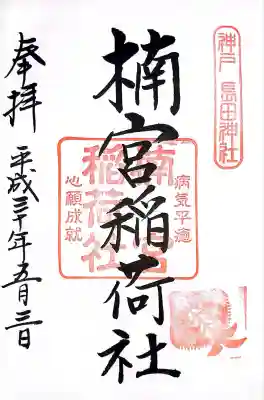 神戸 長田神社
病気平癒
楠宮稲荷社
楠宮稲荷社
心願成就
奉拝
平成三十年五月三日